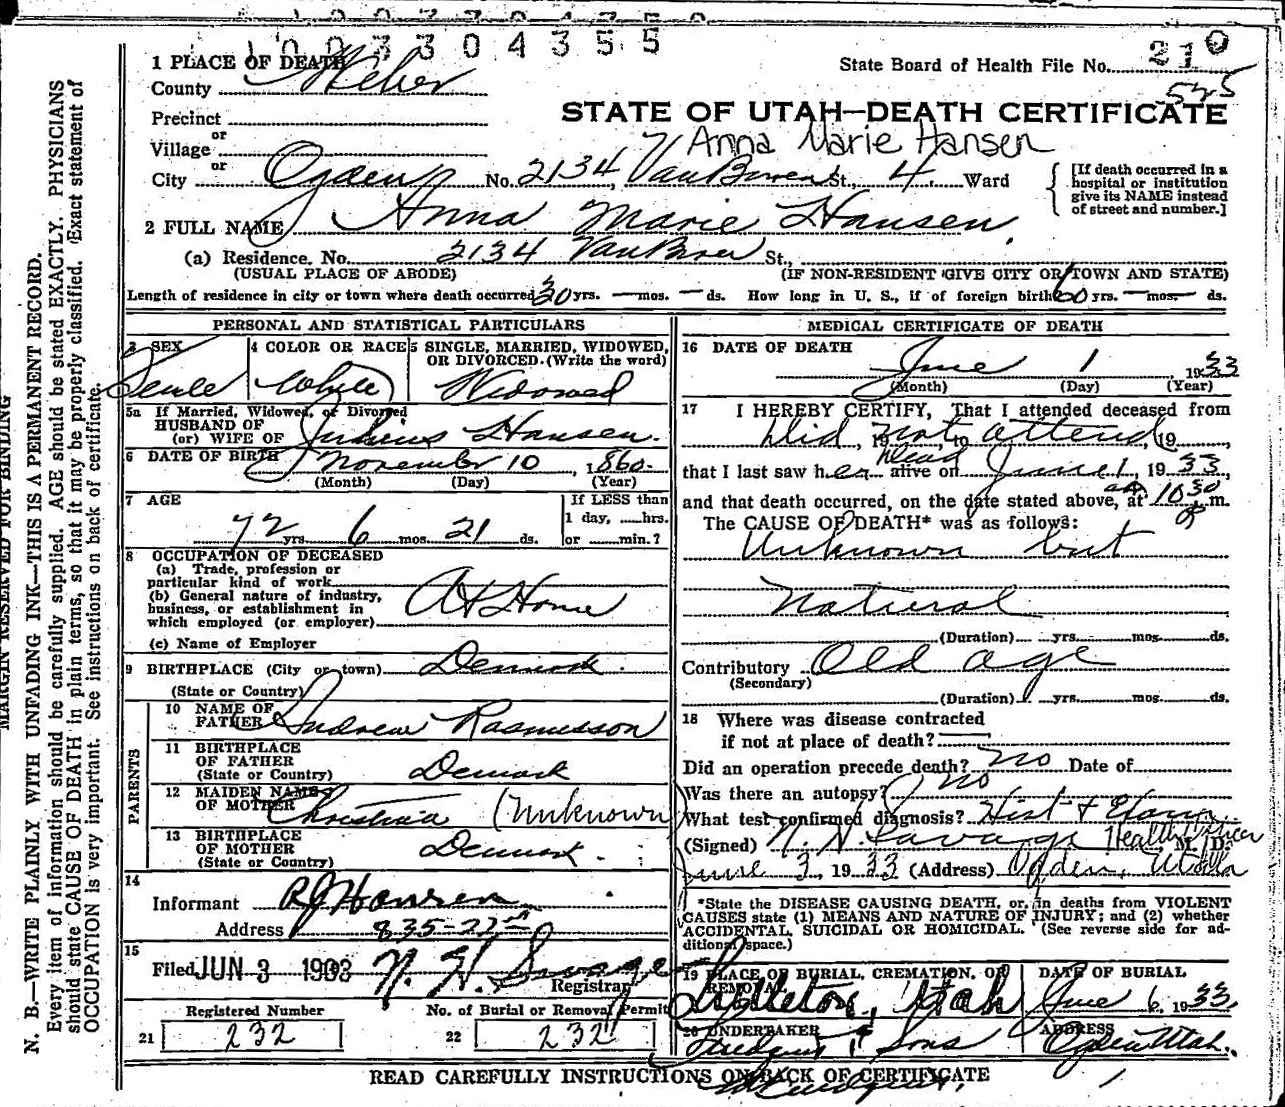 1003304355
1 PLACE OF DEATH
State Board of Health File No. 210
County Weber
525
STATE OF UTAH—DEATH CERTIFICATE
Precinct
or
Anna Marie Hansen
Village
or
City Ogden No. 2134 Van Buren St., 4 Ward
[If death occurred in a hospital or institution give its NAME instead of street and number.]
2 FULL NAME Anna Marie Hansen
(a) Residence. No. 2134 Van Buren St.,
(USUAL PLACE OF ABODE) (IF NON-RESIDENT GIVE CITY OR TOWN AND STATE)
Length of residence in city or town where death occurred 30 yrs. — mos. — ds. How long in U. S., if of foreign birth? 60 yrs. — mos. — ds.
PERSONAL AND STATISTICAL PARTICULARS
3 SEX 4 COLOR OR RACE 5 SINGLE, MARRIED, WIDOWED,
OR DIVORCED. (Write the word)
White Widowed
5a If Married, Widowed, or Divorced
HUSBAND OF
(or) WIFE OF Julius Hansen.
6 DATE OF BIRTH November 10, 1860.
(Month) (Day) (Year)
7 AGE
If LESS than
1 day, ......hrs.
72 yrs. 6 mos. 21 ds. or ......min.?
8 OCCUPATION OF DECEASED
(a) Trade, profession or
particular kind of work
(b) General nature of industry,
business, or establishment in
which employed (or employer)
At Home
(c) Name of Employer
9 BIRTHPLACE (City or town) Denmark.
(State or Country)
PARENTS
10 NAME OF
FATHER Andrew Rasmusson
11 BIRTHPLACE
OF FATHER
(State or Country) Denmark
12 MAIDEN NAME
OF MOTHER Christina (Unknown
13 BIRTHPLACE
OF MOTHER
(State or Country) Denmark.
14
Informant R J Hansen
Address 835-22nd
15
Filed JUN 3 1903 N. H. Savage
Registrar
Registered Number No. of Burial or Removal Permit
21 232 22 232
MEDICAL CERTIFICATE OF DEATH
16 DATE OF DEATH
June 1 1933
(Month) (Day) (Year)
17 I HEREBY CERTIFY, That I attended deceased from
Did, 19 not to attend, 19
dead
that I last saw her alive on June 1, 1933,
and that death occurred, on the date stated above, at 10 30 m.
The CAUSE OF DEATH* was as follows:
Unknown but
Natural
(Duration) yrs. mos. ds.
Contributory Old age
(Secondary)
(Duration) yrs. mos. ds.
18 Where was disease contracted
if not at place of death?
Did an operation precede death? no Date of
Was there an autopsy? no
What test confirmed diagnosis? Hist +
(Signed) N. H. Savage Health Officer M. D.
June 3, 1933 (Address) Ogden, Utah
*State the DISEASE CAUSING DEATH, or, in deaths from VIOLENT
CAUSES state (1) MEANS AND NATURE OF INJURY; and (2) whether
ACCIDENTAL, SUICIDAL OR HOMICIDAL. (See reverse side for ad-
ditional space.)
19 PLACE OF BURIAL, CREMATION, OR REMOVAL DATE OF BURIAL
Utah June 6, 1933
20 UNDERTAKER ADDRESS
& Sons Ogden Utah.
READ CAREFULLY INSTRUCTIONS ON BACK OF CERTIFICATE
MARGIN RESERVED FOR BINDING
N. B.—WRITE PLAINLY WITH UNFADING INK—THIS IS A PERMANENT RECORD.
Every item of information should be carefully supplied. AGE should be stated EXACTLY. PHYSICIANS
should state CAUSE OF DEATH in plain terms, so that it may be properly classified. Exact statement of
OCCUPATION is very important. See instructions on back of certificate.